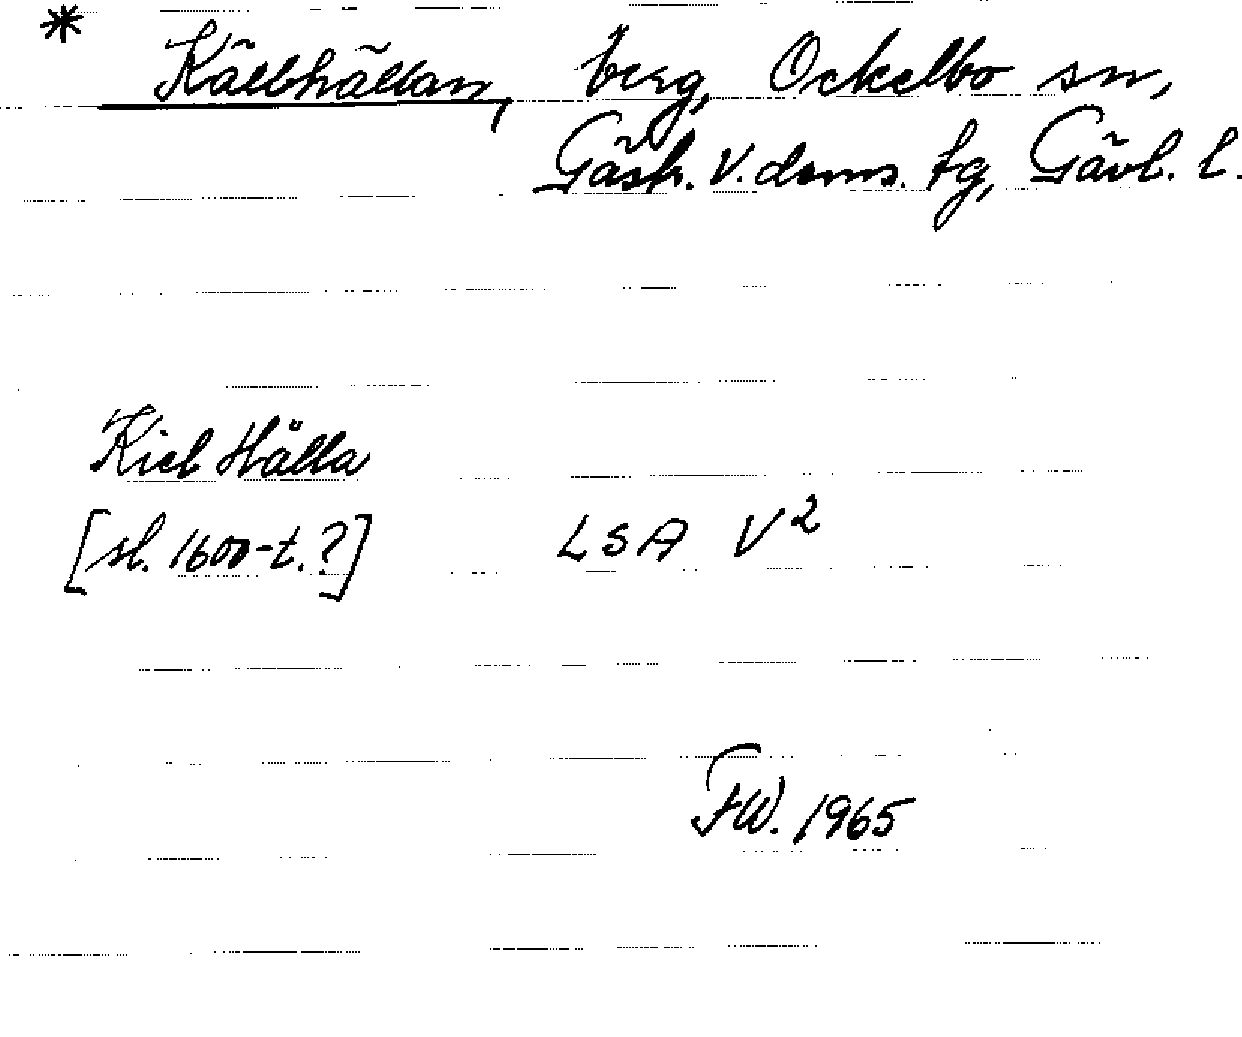 * Källhällan, berg, Ockelbo sn,
Gästr. V. doms. tg, Gävl. l.
Kiel Hälla
[sl. 1600-t.?] LSA V²
FW. 1965